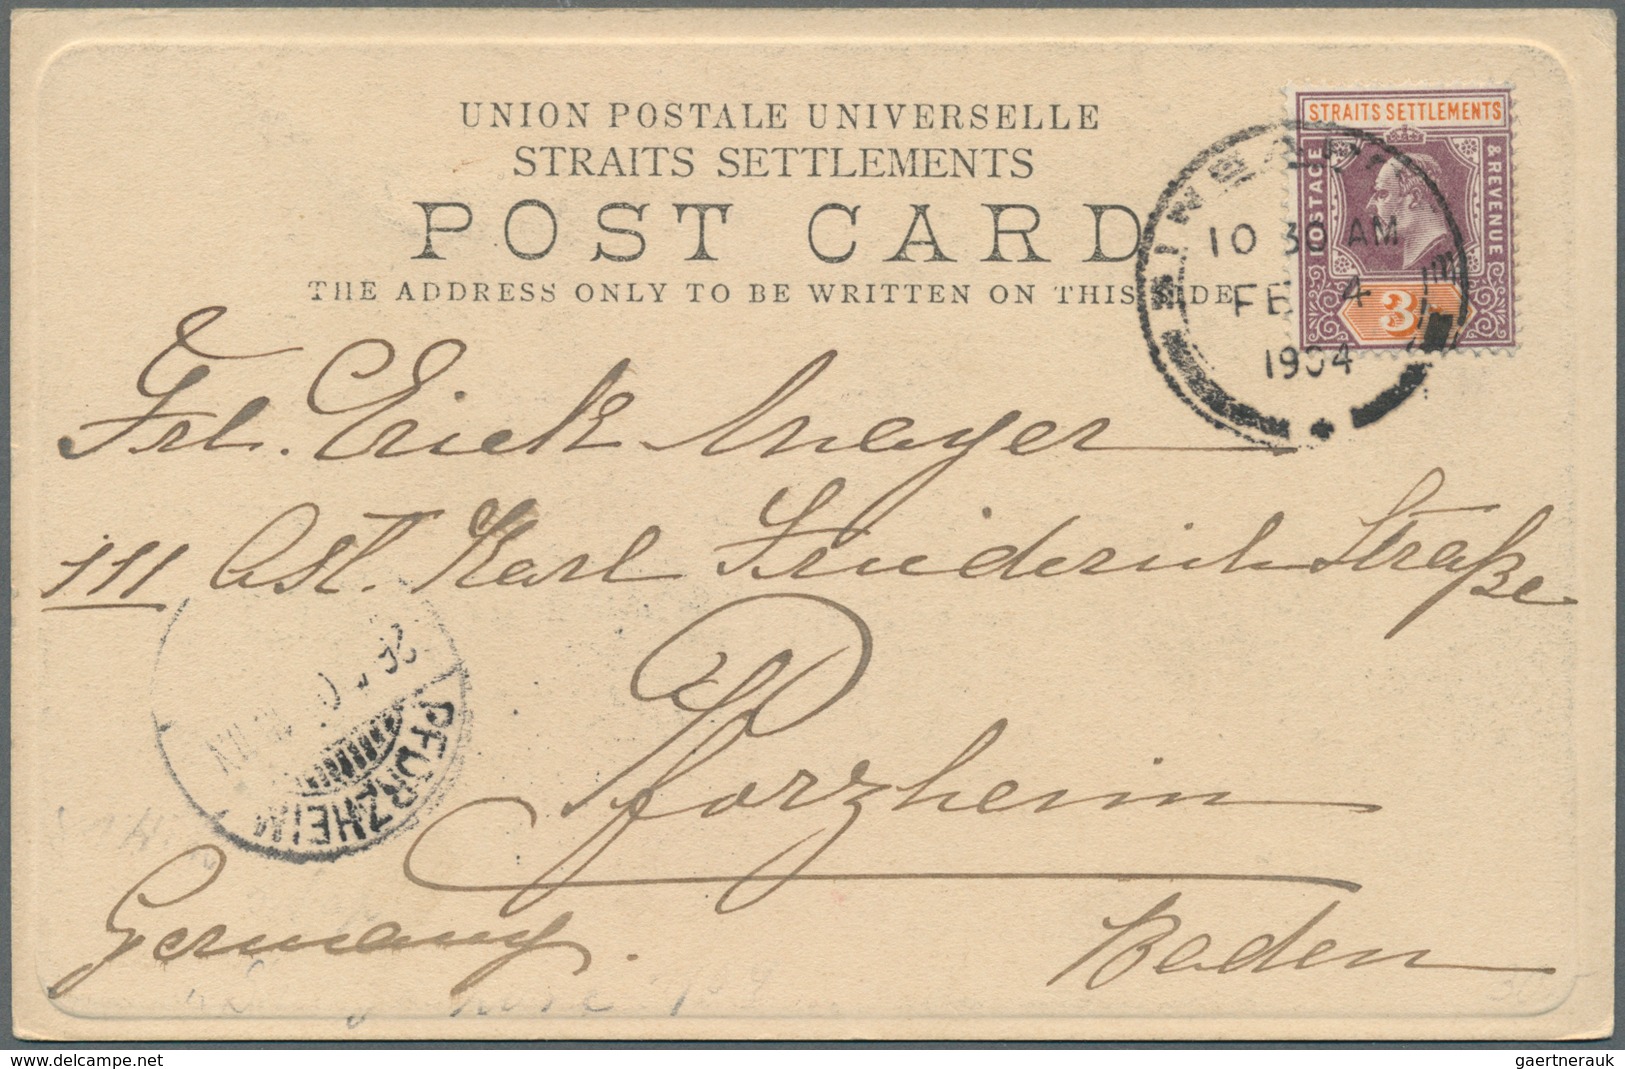 UNION POSTALE UNIVERSELLE
STRAITS SETTLEMENTS
POST CARD
THE ADDRESS ONLY TO BE WRITTEN ON THIS SIDE
STRAITS SETTLEMENTS
POSTAGE
& REVENUE
3
10 30 AM
FE 4
1904
Frl. Erick Mayer
111 Ast. Karl Friederich Straße
Pforzheim
PFORZHEIM
Germany.
Baden
www.delcampe.net
gaertnerauk